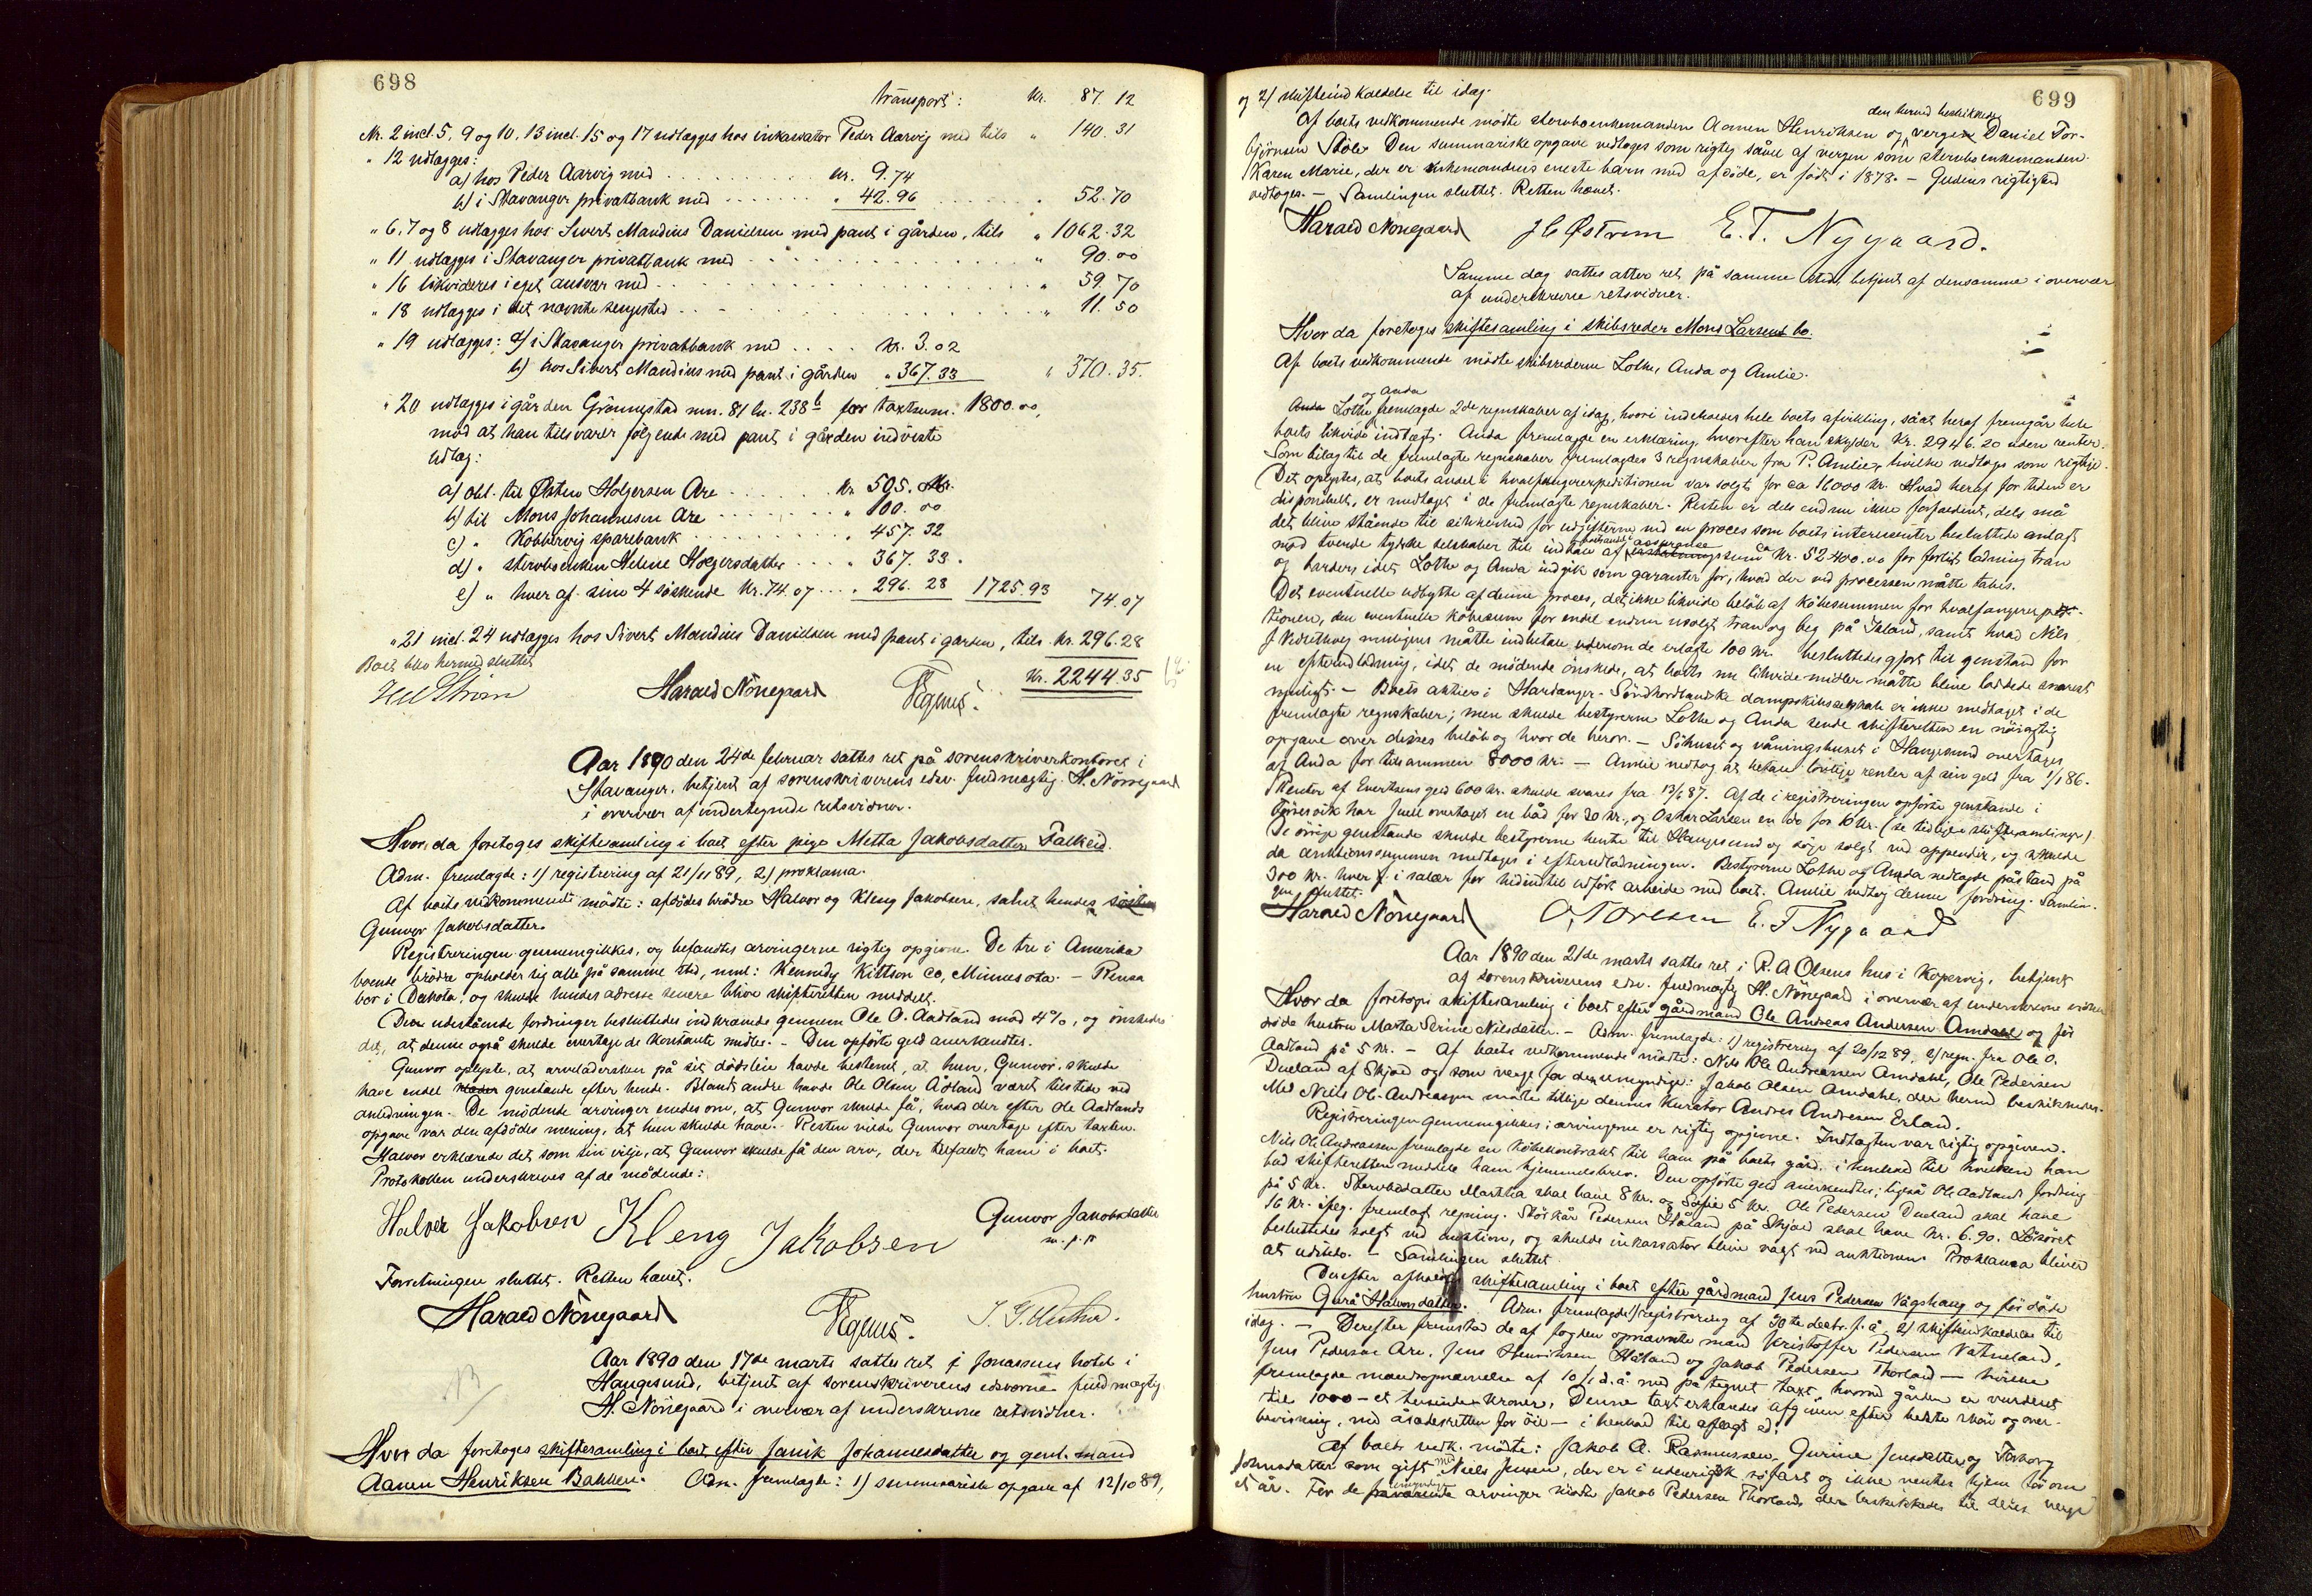 698
transport: Kr. 87.12
Nr. 2 incl. 5, 9 og 10, 13 incl. 15 og 17 udlægges hos inkassator Peder Aarvig med tils " 140.31
" 12 udlægges:
a) hos Peder Aarvig med Kr. 9.74
b) i Stavanger privatbank med " 42.96 " 52.70
" 6, 7 og 8 udlægges hos Sivert Mandius Danielsen med pant i gården, tils " 1062.32
" 11 udlægges i Stavanger privatbank med " 90.00
" 16 likvideres i eget ansvar med " 59.70
" 18 udlægges i det nævnte sengested " 11.50
" 19 udlægges: a) i Stavanger privatbank med Kr. 3.02
b) hos Sivert Mandius med pant i gården " 367.33 " 370.35.
" 20 udlægges i gården Grönnestad mn. 81 ln. 238b for taxtsum. 1800.00,
mod at han tilsvarer følgende med pant i gården indviste
udlæg:
a) obl. til Østen Holgersen Are Kr. 505.
b) til Mons Johannesen Are " 100.00
c) " Kobbervig sparebank " 457.32
d) " stervboenken Helene Holgersdatter " 367.33.
e) " hver af sine 4 söskende Kr. 74.07 " 296.28 1725.93 74.07
" 21 incl. 24 udlægges hos Sivert Mandius Danielsen med pant i gården, tils. Kr. 296.28
Boet blev hermed sluttet
Kr. 2244.35
Harald Nörregaard
Aar 1890 den 24de februar sattes ret på sorenskriverkontoret i
Stavanger, betjent af sorenskriverens edsv. fuldmægtig H. Nörregaard
i overvær af undertegnede retsvidner.
Hvor da foretoges skiftesamling i boet efter pige Metta Jakobsdatter Falkeid.
Adm. fremlagde: 1) registrering af 21/11 89, 2) proklama.
Af boets vedkommende mödte: afdödes brödre Halvor og Kleng Jakobsen, samt hendes söster
Gunvor Jakobsdatter.
Registreringen gennemgikkes, og befandtes arvingerne rigtig opgivne. De tre i Amerika
boende brödre opholder sig alle på samme sted, nml: Kennedy Kittson Co, Minnesota. –
bor i Dakota, og skulde hendes adresse senere blive skifteretten meddelt.
Den udestående fordringer besluttedes indkrævede gennem Ole O. Aadland mod 4%, og önskedes
det, at denne også skulde overtage de kontante midler. – Den opførte gæld anerkendtes.
Gunvor oplyste, at arveladersken på sit dödsleie havde bestemt, at hun, Gunvor, skulde
have endel klæder genstande efter hende. Blandt andre havde Ole Olsen Ådland været tilstede ved
anledningen. De mödende arvinger enedes om, at Gunvor skulde få, hvad der efter Ole Aadlands
opgave var den afdödes mening, at hun skulde have. Resten vilde Gunvor overtage efter taxten.
Halvor erklærede det som sin vilje, at Gunvor skulde få den arv, der tilfaldt ham i boet.
Protokollen underskrives af de mödende:
Halvor Jakobsen Kleng Jakobsen Gunvor Jakobsdatter
m. p. p
Forretningen sluttet. Retten hævet.
Harald Nörregaard
Aar 1890 den 17de marts sattes ret i Jonassens hotel i
Haugesund, betjent af sorenskriverens edsvorne fuldmægtig
H. Nörregaard i overvær af underskrevne retsvidner.
Hvor da foretoges skiftesamling i boet efter Janik Johannesdatter og genl. mand
Aamen Henriksen Bakken. Adm. fremlagde: 1) summariske opgave af 12/10 89,
699
og 2) skifteindkaldelse til idag.
Af boets vedkommende mödte stervboenkemanden Aamen Henriksen og den herved beskikkede vergen Daniel Tor-
björnsen Stole. Den summariske opgave vedtoges som rigtig såvel af vergen som stervboenkemanden.
Karen Marie, der er enkemandens eneste barn med afdöde, er født i 1878. – Gældens rigtighed
vedtoges. – Samlingen sluttet. Retten hævet.
Harald Nörregaard J C Østrem E. T. Nygaard.
Samme dag sattes atter ret på samme sted, betjent af densamme i overvær
af underskrevne retsvidner.
Hvor da foretoges skiftesamling i skibsreder Mons Larsens bo.
Af boets vedkommende mödte skibsrederne Lothe, Anda og Amlie.
Anda Lothe og Anda fremlagde 2de regnskaber af idag, hvori indeholdes hele boets afvikling, såat heraf fremgår hele
boets likvide indtægt. Anda fremlagde en erklæring, hvorefter han skylder Kr. 2946.20 uden renter.
Som bilag til de fremlagte regnskaber fremlagdes 3 regnskaber fra P. Amlie, hvilke vedtoges som rigtige.
Det oplystes, at boets andel i hvalfangerexpeditionen var solgt for ca 16000 kr. Hvad heraf for tiden er
disponibelt, er medtaget i de fremlagte regnskaber. Resten er dels endnu ikke forfaldent, dels må
det blive stående til sikkerhed for udgifterne ved en proces som boets interessenter besluttede anlagt
mod tvende tydske selskaber til indtale af assurancesum Kr. 52400.00 for forlist ladning tran
og barder, idet Lothe og Anda indgik som garanter for, hvad der ved processen måtte tabes.
Det eventuelle udbytte af denne proces, det ikke likvide beløb af købesummen for hvalfangerexpedi-
tionen, den eventuelle købesum for endel endnu usolgt tran og beg på Island, samt hvad Nils
J Videthveg muligens måtte indbetale udover de erlagte 100 kr. besluttedes gjort til genstand for
en efterudlodning, idet de mödende önskede, at boets nu likvide midler måtte blive loddede snarest
muligt. – Boets aktier i Hardanger-Söndhordlandske dampskibsselskab er ikke medtaget i de
fremlagte regnskaber; men skulde bestyrerne Lothe og Anda sende skifteretten en nöiagtig
opgave over disses beløb og hvor de beror. – Söhuset og våningshuset i Haugesund overtages
af Anda for tilsammen 8000 kr. – Amlie vedtog at betale lovlige renter af sin gæld fra 1/1 86.
Renter af Evertsens gæld 600 kr. skulde svares fra 13/6 87. Af de i registreringen opførte genstande i
har Juell overtaget en båd for 20 kr., og Oskar Larsen en do for 10 kr. (se tidligere skiftesamlinger)
De övrige genstande skulde bestyrerne hente til Haugesund og søge solgt ved appendix, og skulde
da auktionssummen medtages i efterudlodningen. Bestyrerne Lothe og Anda nedlagde påstand på
300 kr. hver i salær for hidindtil udført arbeide med boet. Amlie vedtog denne fordring. Samlin-
gen sluttet.
Harald Nörregaard O. Toresen E. T Nygaard
Aar 1890 den 21de marts sattes ret i R. A Olsens hus i Kopervig, betjent
af sorenskriverens edsv. fuldmægtig H. Nörregaard i overvær af underskrevne vidner
Hvor da foretoges skiftesamling i boet efter gårdmand Ole Andreas Andersen Amdahl og før
døde hustru Marta Serine Nilsdatter. – Adm. fremlagde: 1) registrering af 20/12 89, 2) regn. fra Ole O.
Aadland på 5 kr. – Af boets vedkommende mödte: Nils Ole Andreassen Amdahl, Ole Pedersen
Dueland af Skjold og som verge for de umyndige: Jakob Olsen Amdahl, der herved beskikkedes.
Med Niels Ol. Andreassen mödte tillige dennes kurator Andres Andresen Erland.
Registreringen gennemgikkes; arvingerne er rigtig opgivne. Indtægten var rigtig opgiven.
Nils Ol. Andreassen fremlagde en købekontrakt til ham på boets gård, i henhold til hvilken han
bad skifteretten meddele ham hjemmelsbrev. Den opførte gæld anerkendtes; ligeså Ole Aadlands fordring
på 5 kr. Stervbodatter Martha skal have 8 kr. og Sofie 5 kr. Ole Pedersen Dueland skal have
16 kr. ifølg. fremlagt regning. Störkår Pedersen Håland på Skjold skal have Kr. 6.90. Løsøret
besluttedes solgt ved auktion, og skulde inkassator blive valgt ved auktionen. Proklama bliver
at udstede. – Samlingen sluttet.
Derefter afholdtes skiftesamling i boet efter gårdmand Jens Pedersen Vågshaug og før døde
hustru Gurå Halvorsdatter. Adm. fremlagde 1) registrering af 30te decbr. f. å. 2) skifteindkaldelse til
idag. – Derefter fremstod de af fogden opnævnte mænd Kristoffer Pedersen Vatneland,
Jens Pedersen Are, Jens Henriksen Håland og Jakob Pedersen Thorland – hvilke
fremlagde mandsopnævnelse af 10/1 d. å. med påtegnet taxt, hvorved gården er vurderet
til 1000 – et tusinde – kroner. Denne taxt erklæredes afgiven efter bedste skön og over-
bevisning, med åsædesretten for öie – i henhold til aflagt ed.
Af boets vedk. mödte: Jakob A. Rasmussen, Gurine Jensdatter og Torborg
Johnsdatter som gift med Niels Jensen, der er i udenrigsk søfart og ikke ventes hjem før om
et år. For de umyndige arvinger mödte Jakob Pedersen Thorland, der beskikkedes til deres verge